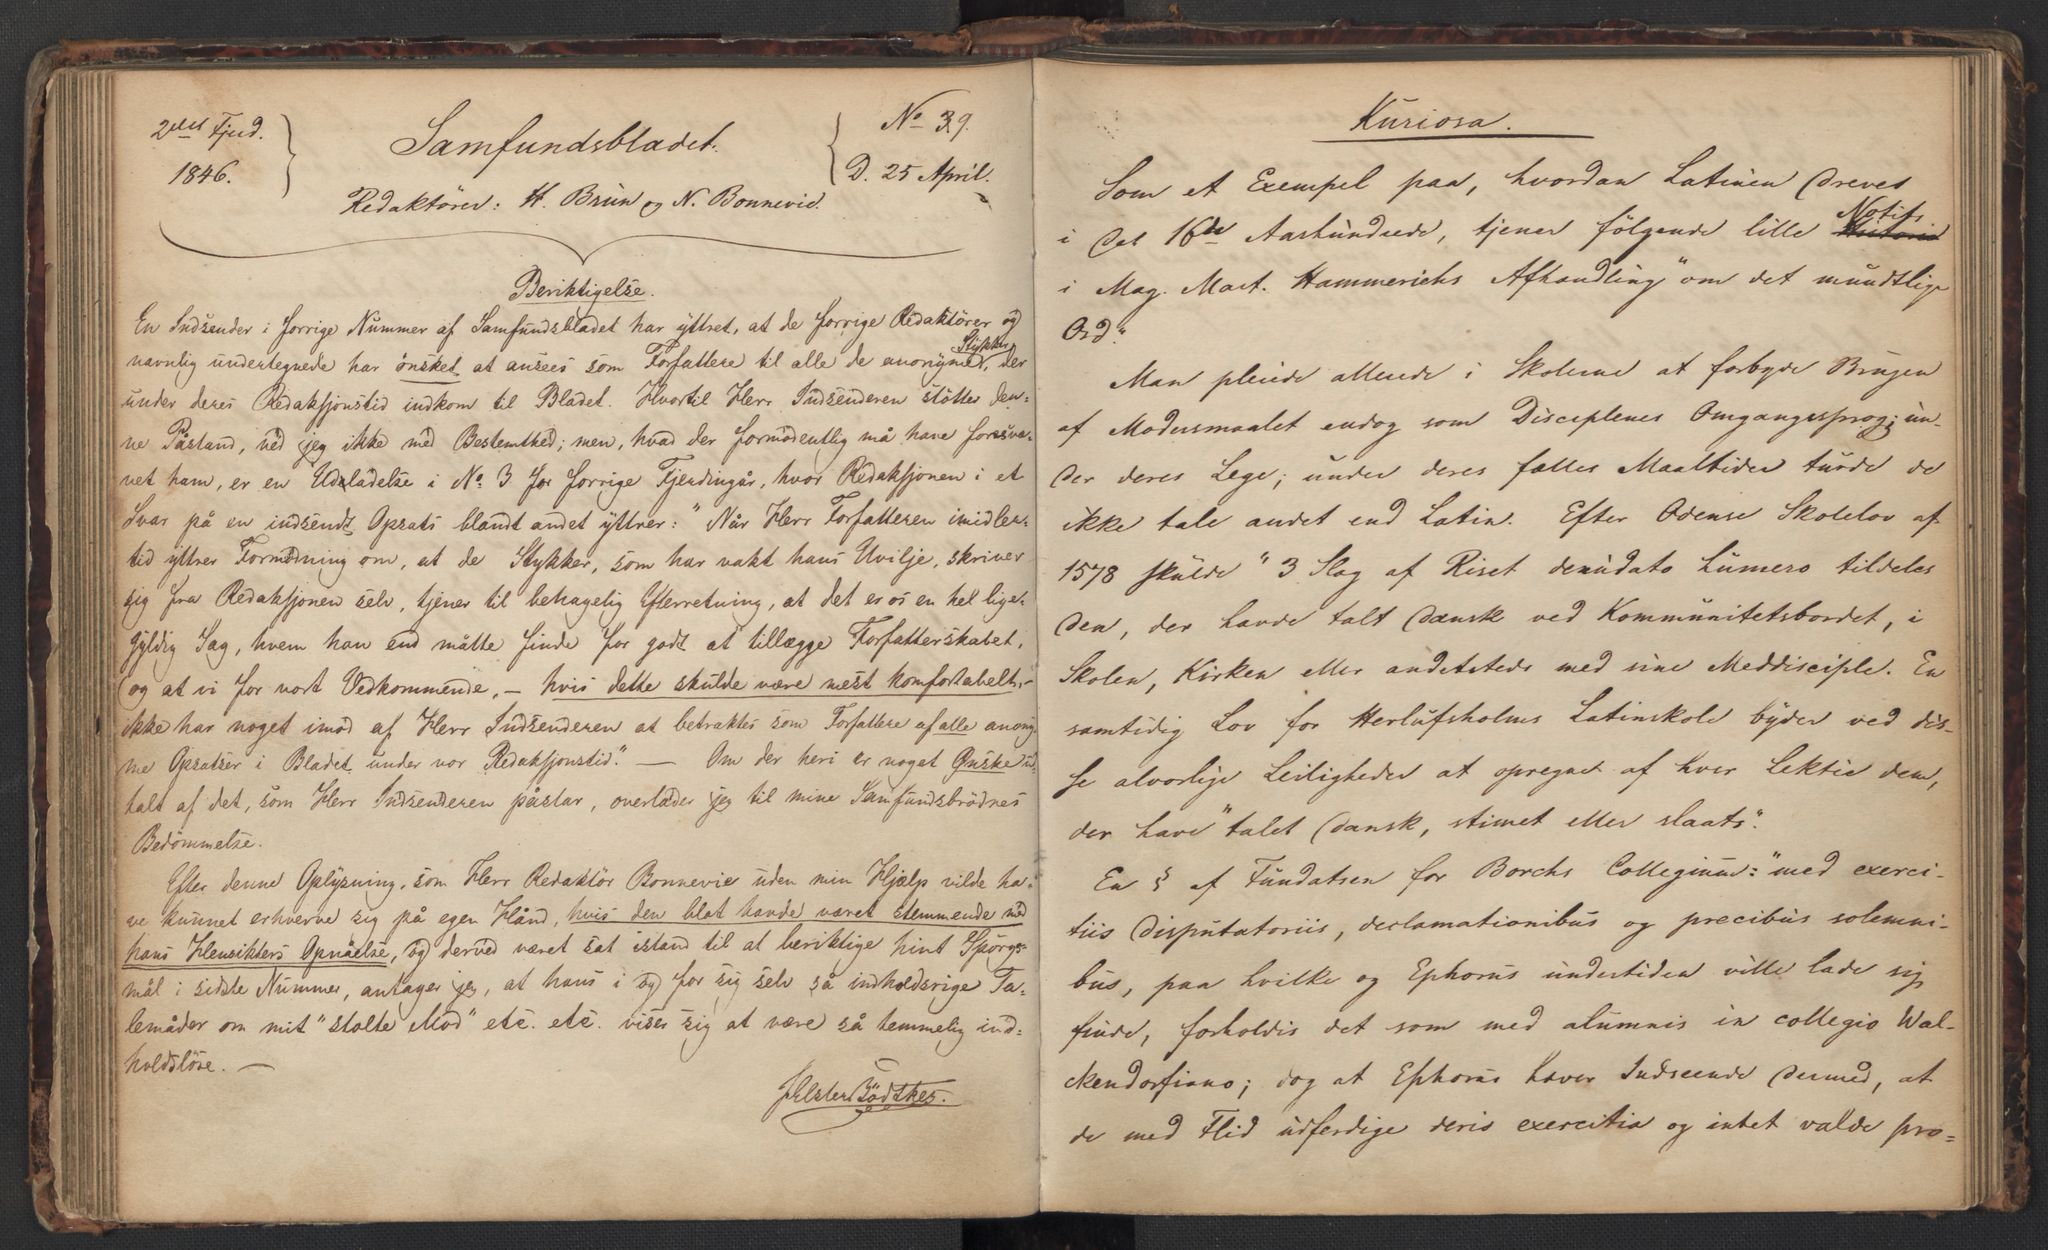 2det Fjerd.
1846.
Samfundsbladet.
Redaktörer: H. Brun og N. Bonnevie.
No 39.
D. 25 April.
Beriktigelse.
En Indsender i forrige Nummer af Samfundsbladet har yttret, at de forrige Redaktörer og
navnlig undertegnede har önsket at ansees som Forfattere til alle de anonyme Stykker, der
under deres Redaksjonstid indkom til Bladet. Hvortil Herr Indsenderen stötter den-
ne Påstand, ved jeg ikke med Bestemthed; men, hvad der formodentlig må have foresvæ-
vet ham, er en Udladelse i No. 3 for forrige Fjerdingår, hvor Redaksjonen i et
Svar på en indsendt Opsats blandt andet yttrer: "Når Herr Forfatteren imidler-
tid yttrer Formodning om, at de Stykker, som har vakt hans Uvilje, skriver
sig fra Redaksjonen selv, tjener til behagelig Efterretning, at det er os en hel lige-
gyldig Sag, hvem han end måtte finde for godt at tillægge Forfatterskabet,
og at vi for vort Vedkommende, – hvis dette skulde være mest komfortabelt, –
ikke har noget imod af Herr Indsenderen at betraktes som Forfattere af alle anony-
me Opsatser i Bladet under vor Redaksjonstid." — Om der heri er noget Önske ud-
talt af det, som Herr Indsenderen påstår, overlader jeg til mine Samfundsbrödres
Bedömmelse.
Efter denne Oplysning, som Herr Redaktör Bonnevie uden min Hjælp vilde ha-
ve kunnet erhverve sig på egen Hånd, hvis den blot havde været stemmende med
hans Hensikters Opnåelse, og derved været sat istand til at beriktige hint Spörgs-
mål i sidste Nummer, antager jeg, at hans i og for sig selv så indholdsrige Ta-
lemåder om mit "stolte Mod" etc. etc. viser sig at være så temmelig ind-
holdslöse. —
Bödtker.
Kuriosa.
Som et Exempel paa, hvordan Latinen dreves
i det 16de Aarhundrede, tjener fölgende lille Notits
i Mag. Mart. Hammerichs Afhandling "om det mundtlige
Ord".
Man pleiede allerede i Skolerne at forbyde Brugen
af Modersmaalet endog som Disciplenes Omgangssprog; un-
der deres Lege; under deres fælles Maaltider turde de
ikke tale andet end Latin. Efter Odense Skolelov af
1578 skulde "3 Slag af Riset denudato Lumero tildeles
den, der havde talt dansk ved Kommunitetsbordet, i
Skolen, Kirken eller andetsteds med sine Meddisciple. En
samtidig Lov for Herlufsholms Latinskole byder ved dis-
se alvorlige Leiligheder at opregne af hver Lektie dem,
der have "talet dansk, stimet eller slaats".
En § af Fundatsen for Borchs Collegium: "med exerci-
tiis disputatoriis, declamationibus og precibus solemni-
bus, paa hvilke og Ephorus undertiden ville lade sig
finde, forholdis det som med alumnis in collegio Wal-
ckendorfiano; dog at Ephorus haver Indseende dermed, at
de med Flid udferdige deris exercitia og intet valde pro-